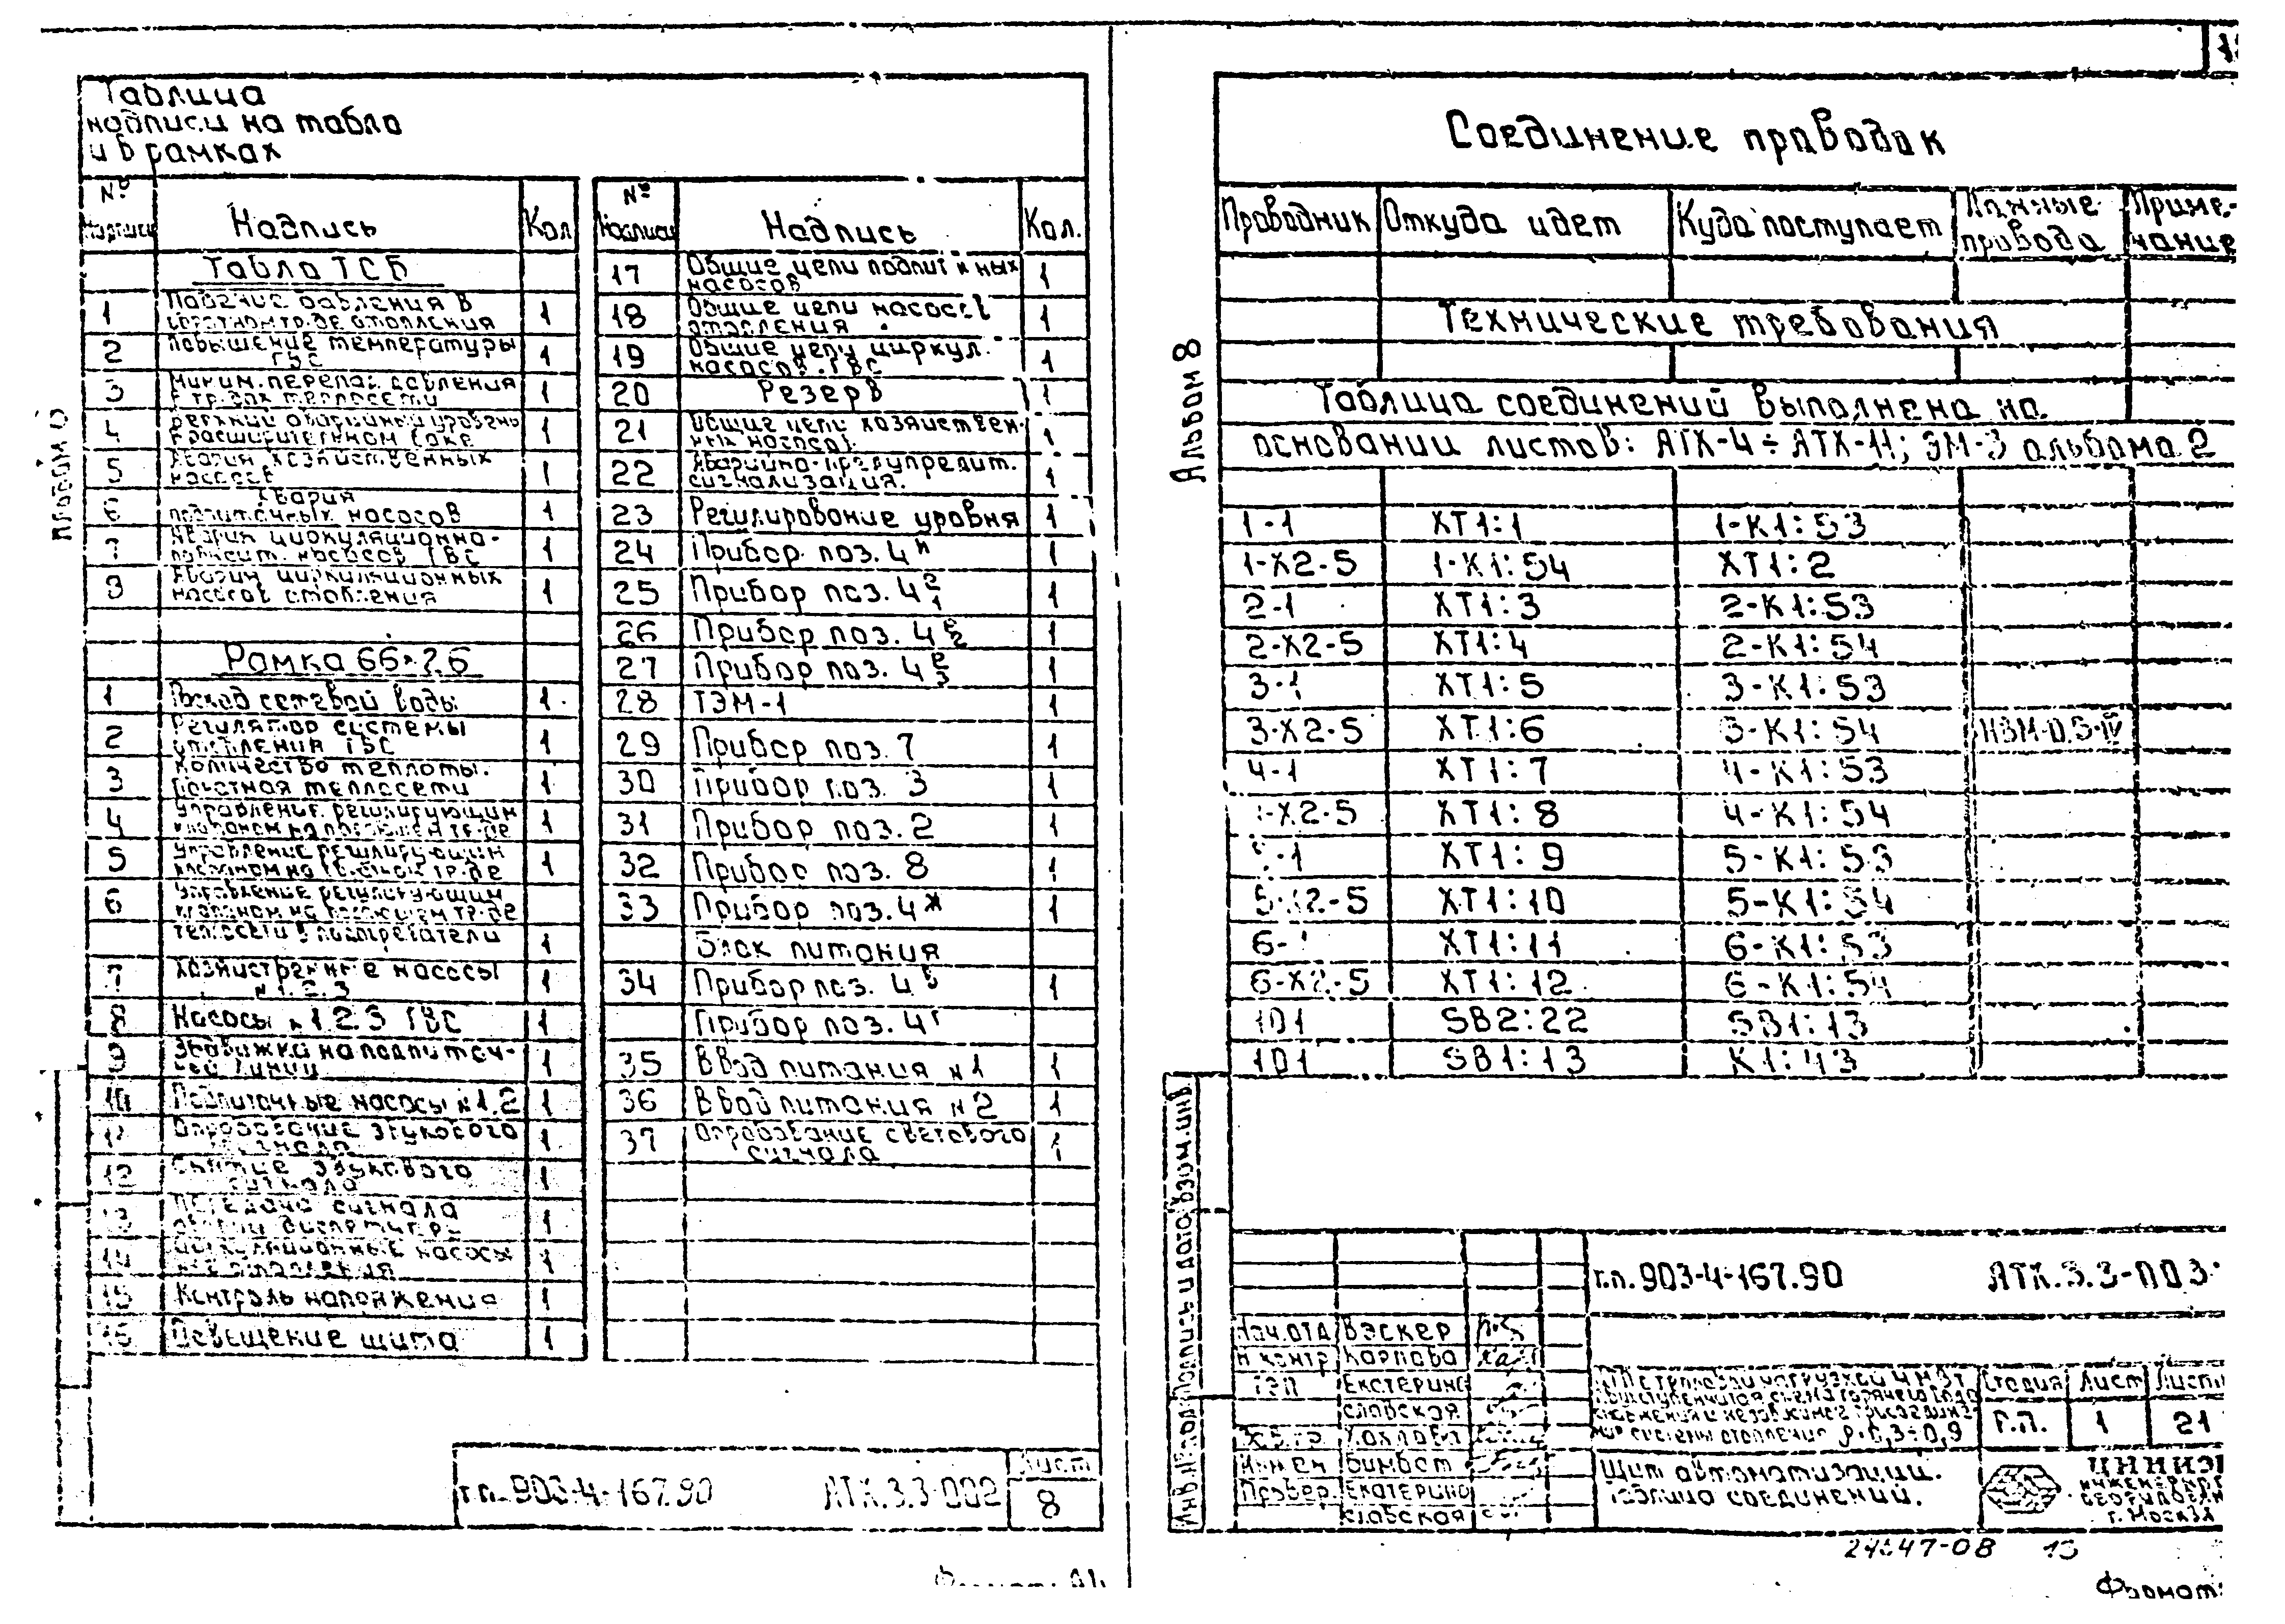 Таблица
надписи на табло
и в рамках
№ надписи Надпись Кол
Табло ТСБ
1 Падение давления в
обратном тр-де отопления 1
2 Повышение температуры
ГВС 1
3 Миним. перепад давления
в тр-дах теплосети 1
4 Верхний аварийный уровень
в расширительном баке 1
5 Авария хозяйственных
насосов 1
6 Авария
подпиточных насосов 1
Авария циркуляционно-
повысит. насосов ГВС 1
8 Авария циркуляционных
насосов отопления 1
Рамка 66×26
1 Расход сетевой воды 1
2 Регулятор системы
отопления ГВС 1
3 Количество теплоты.
Обратная теплосети 1
4 Управление регулирующим
клапаном на тр-де 1
5 Управление регулирующим
клапаном на тр-де 1
6 Управление регулирующим
клапаном на тр-де
теплосети 1
7 Хозяйственные насосы
№ 1.2.3 1
8 Насосы № 1 2 3 ГВС 1
9 Задвижка на подпиточ-
ной линии 1
10 Подпиточные насосы №1.2 1
11 Опробование звукового
сигнала 1
12 Снятие звукового
сигнала 1
13 Передача сигнала
аварии диспетчеру 1
14 Циркуляционные насосы
отопления 1
15 Контроль напряжения 1
16 Освещение щита 1
№ надписи Надпись Кол.
17 Общие цепи подпиточных
насосов 1
18 Общие цепи насосов
отопления 1
19 Общие цепи циркул.
насосов. ГВС 1
20 Резерв 1
21 Общие цепи хозяйствен-
ных насосов. 1
22 Аварийно-предупредит.
сигнализация. 1
23 Регулирование уровня 1
24 Прибор поз. 4и 1
25 Прибор поз. 4е1 1
26 Прибор поз. 4е2 1
27 Прибор поз. 4е3 1
28 ТЭМ-1 1
29 Прибор поз. 7 1
30 Прибор поз. 3 1
31 Прибор поз. 2 1
32 Прибор поз. 8 1
33 Прибор поз. 4ж 1
Блок питания
34 Прибор поз. 4в 1
Прибор поз. 4г
35 Ввод питания №1 1
36 Ввод питания №2 1
37 Опробование светового
сигнала 1
т.п. 903-4-167.90 АТХ.3.3-002 Лист
8
Соединение проводок
Проводник Откуда идет Куда поступает Данные
провода Приме-
чание
Технические требования
Таблица соединений выполнена на
основании листов: АТХ-4÷АТХ-11; ЭМ-3 альбома 2
Альбом 8
1-1 XT1:1 1-K1:53
1-X2-5 1-K1:54 XT1:2
2-1 XT1:3 2-K1:53
2-X2-5 XT1:4 2-K1:54
3-1 XT1:5 3-K1:53
3-X2-5 XT1:6 3-K1:54
4-1 XT1:7 4-K1:53
-X2-5 XT1:8 4-K1:54
-1 XT1:9 5-K1:53
5-X2-5 XT1:10 5-K1:54
6-1 XT1:11 6-K1:53
6-X2-5 XT1:12 6-K1:54
101 SB2:22 SB1:13
101 SB1:13 K1:43
Инв.№ подл. Подпись и дата Взам.инв.
т.п. 903-4-167.90 АТХ.3.3-003
Нач.отд Вэскер
Н контр Карпова
ГЭП Екатерино
славская
Хохлова
Инжен Бимбат
Провер. Екатерино
славская
Стадия Лист Листо
Р.П. 1 21
Щит автоматизации.
Таблица соединений.
г. Москва
Формат